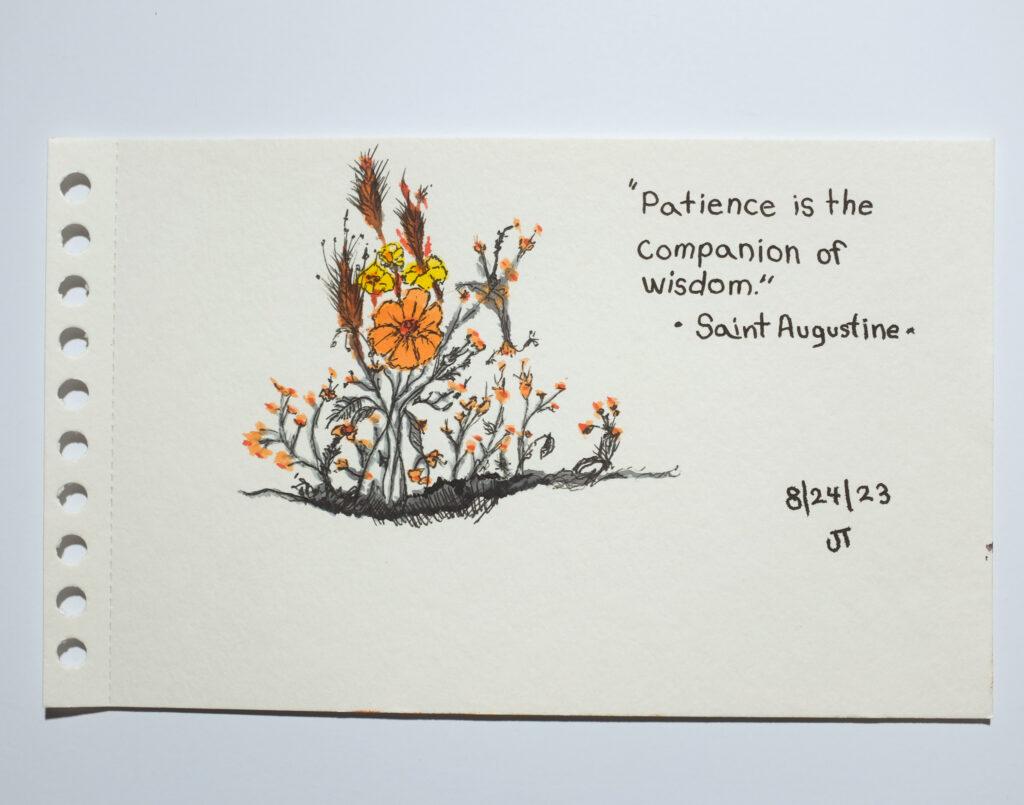 "Patience is the
companion of
wisdom."
• Saint Augustine •
8/24/23
JT